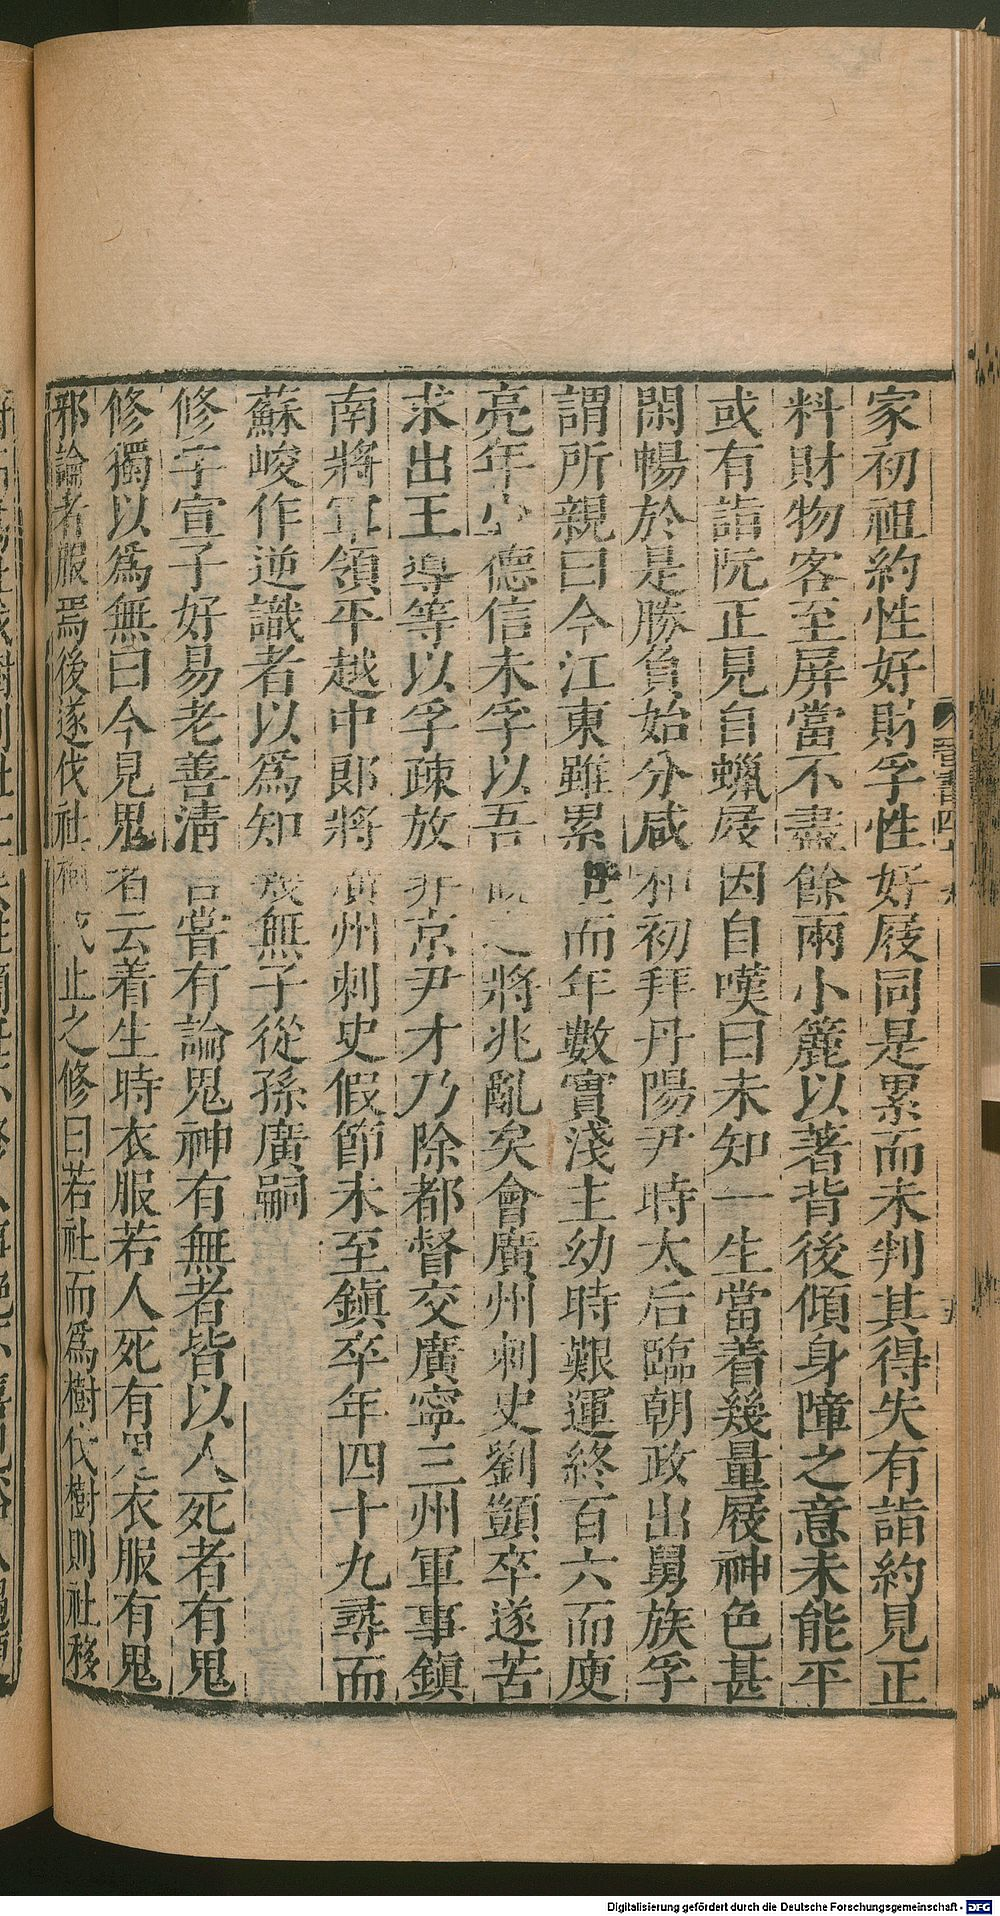 家初祖約性好財孚性好屐同是累而未判其得失有詣約見正
料財物客至屏當不盡餘兩小簏以著背後傾身障之意未能平
或有詣阮正見自蠟屐因自嘆曰未知一生當着幾量屐神色甚
閑暢於是勝負始分咸和初拜丹陽尹時太后臨朝政出舅族孚
謂所親曰今江東雖累世而年數實淺主幼時艱運終百六而庾
亮年少德信未孚以吾 之將兆亂矣會廣州刺史劉顗卒遂苦
求出王導等以孚疎放非京尹才乃除都督交廣寧三州軍事鎮
南將軍領平越中郎將廣州刺史假節未至鎮卒年四十九尋而
蘇峻作逆識者以為知幾無子從孫廣嗣
修字宣子好易老善清言嘗有論鬼神有無者皆以人死者有鬼
修獨以為無曰今見鬼者云着生時衣服若人死有鬼衣服有鬼
邪論者服焉後遂伐社 止之修曰若社而為樹伐樹則社移
晉書四
Digitalisierung gefördert durch die Deutsche Forschungsgemeinschaft - DFG